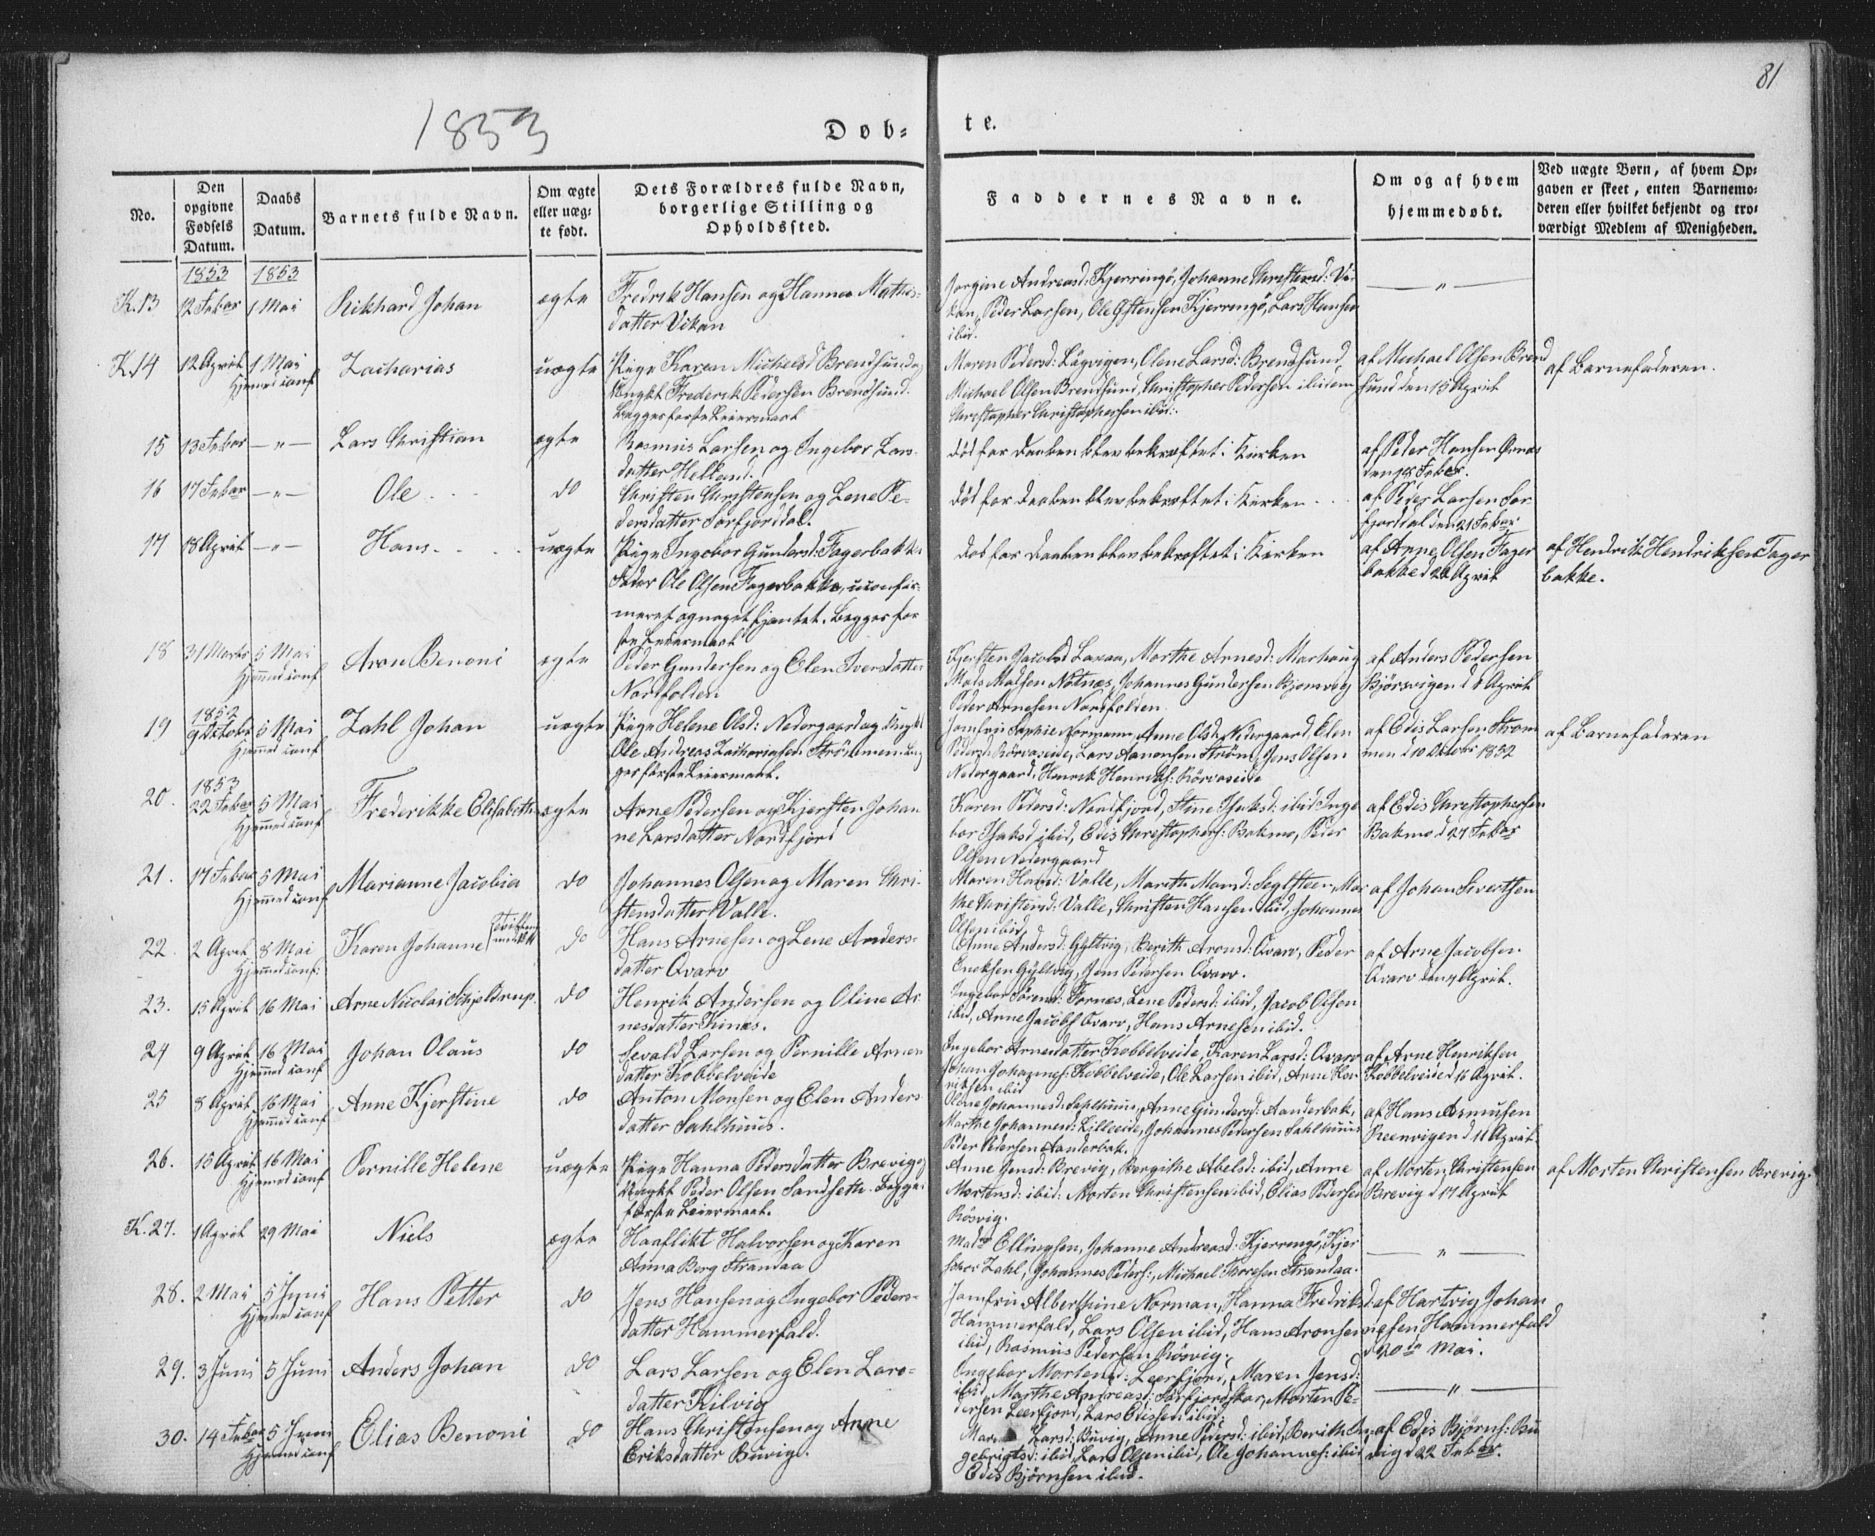 81
1853
Døb-
te.
No.
Den opgivne Fødsels Datum.
Daabs Datum.
Barnets fulde Navn.
Om ægte eller uægte født.
Dets Forældres fulde Navn, borgerlige Stilling og Opholdssted.
Faddernes Navne.
Om og af hvem hjemmedøbt.
Ved uægte Børn, af hvem Opgaven er skeet, enten Barnemoderen eller hvilket bekjendt og troværdigt Medlem af Menigheden.
1853 1853
K.13 12 Febar 1 Mai Rikhard Johan ægte Fredrik Hansen og Hanna Mathis-
datter Vikan
Jorgine Andreasd: Kjerringø, Johanne Christensd: Vi-
kan, Peder Larsen, Ole Kjerringø, Lars Hansen
ibid. — " —
K.14 12 April 1 Mai Zacharias uægte Pige Karen Michelsd Brendsund og
Hjemmed conf
Ungkl Frederik Pedersen Brendsund.
Begges første Leiermaal
Maren Pedersd: Lægvigen, Olene Larsd: Brendsund,
Michael Olsen Brendsund, Christopher Pedersen ibidem
Christopher Christophersen ibid:.
af Michael Olsen Brend
sund den 13 April
af Barnefaderen.
15 13 Febar — " — Lars Christian ægte Rasmus Larsen og Ingebor Lars-
datter Helland.
død før Daaben blev bekræftet i Kirken
af Peder Hansen
den Febar.
16 17 Febar — " — Ole do Christen Christensen og Lene Pe-
dersdatter Sørfjorddal.
død før Daaben blev bekræftet i Kirken
af Peder Larsen Sør-
fjorddal den 21 Febar
17 18 April — " — Hans uægte Pige Ingebor Gundersd: Fagerbakke
Fader Ole Olsen Fagerbakke, uconfir-
meret og noget fjantet. Begges før-
ste Leiermaal
død før Daaben blev bekræftet i Kirken
af Anne Olsen Fager
bakke d 20 April
af Hendrik Hendriksen Fager
bakke.
18 31 Marts 5 Mai Aron Benoni ægte Peder Gundersen og Elen Iversdatter
Hjemmed conf
Nordfolden
Kjersten Jacobsd Laxaa, Marthe Arnesd: Marhaug
Mads Madsen Notnæs, Johannes Gundersen
Peder Arnesen Nordfolden
af Anders Pedersen
Bjørsvigen d 8 April
1852
19 9 Oktobr 5 Mai Zahl Johan uægte Pige Helene Olsd: Nedergaard og Ungkl
Hjemmed conf
Ole Andreas Zachariasen Strømmen
første Leiermaal.
Jomfru Sophie Normann, Anne Olsd: Nedergaard, Elen
Pedersd: Rørvaseide, Lars Aanensen Strøm, Jens Olsen
Nedergaard, Henrik Henriks: Rørvaseide
af Edis Larsen Strøm
men d 10 Oktobr 1852
af Barnefaderen
1853
20. 22 Febar 5 Mai Frederikke Elisabeth ægte Arne Pedersen og Kjersten Johan
Hjemmed conf
ne Larsdatter Nordfjord
Karen Pedersd: Nordfjord, Stine Isaksd: ibid Inge
bor Isaksd ibid, Edis Christophers: Bakmo, Peder
Olsen Nedergaard
af Edis Christophersen
Bakmo d 27 Febar
21. 17 Febar 5 Mai Marianne Jacobia do Johannes Olsen og Maren Chri-
Hjemmed conf
stensdatter Valle.
Maren Hansd: Valle, Mar
the Christensd: Valle, Christen Hansen ibid, Johannes
Olsen ibid,
af Johan Sivertsen
22. 2 April 8 Mai Karen Johanne do Hans Arnesen og Lene Anders-
Hjemmed conf:
datter Qvarv
Anne Andersd: Gyltvig, Berith Aronsd: Qvarv, Peder
Gyltvig, Jens Pedersen Qvarv.
af Arne Jacobsen
Qvarv den 4 April.
23. 15 April 16 Mai Arne Nicolai Schjeldrup. do Henrik Andersen og Oline Ar-
nesdatter Kines.
Ingebor Sørensd: Fornes, Lene Pedersd: ibid, Jacob Olsen
ibid, Arne Jacobs Qvarv, Hans Arnesen ibid.
24 9 April 16 Mai Johan Olaus do Sevald Larsen og Pernille Arnen
Hjemmed conf
datter Kobbelveide
Ingebor Arnesdatter Kobbelveide, Karen Larsd: Qvarv
Johan Johannes: Kobbelveide, Ole Larsen ibid, Arne Hen-
riksen ibid
af Arne Henriksen
Kobbelveide d 16 April.
25 8 April 16 Mai Anne Kjerstine do Anton Monsen og Elen Anders
Hjemmed conf
datter Sahlhuus.
Oline Johannesd: Sahlhuus, Anne Gundersd: Aanderbak,
Marthe Johannesd: Lilleeide, Johannes Pedersen Sahlhuus
Peder Pedersen Aanderbak.
af Hans Asmusen
Reenvigen d 11 April
26. 15 April 16 Mai Pernille Helene uægte Pige Hanna Pedersdatter Brevig og
Hjemmed conf
Ungkl Peder Olsen Sandseth. Begges
første Leiermaal.
Anne Jensd: Brevig, Bergithe Abelsd: ibid, Anne
Mortensd: ibid: Morten Christensen ibid, Elias Pedersen
Røsvig.
af Morten Christensen
Brevig d 17 April
af Morten Christensen Brevig.
K.27. 1 April 29 Mai Niels ægte Haaflikt Halvorsen og Karen
Anna Berg Strandaa
Madm Ellingsen, Johanne Andreasd: Kjerringø,
Zahl, Johannes Peders:, Michael Thoresen Strandaa.
— " —
28. 2 Mai 5 Juni Hans Petter do Jens Hansen og Ingebor Peders-
Hjemmed conf
datter Hammerfald.
Jomfru Alberthine Norman, Hanna Fredriksd:
Hammerfald, Lars Olsen ibid, Hans Aronsen
ibid, Rasmus Pedersen Røsvig.
af Hartvig Johan
nesen Hammerfald
d 20de Mai.
29. 3 Juni 5 Juni Anders Johan do Lars Larsen og Elen Lars-
datter Kilvig
Ingebor Mortensd: Leerfjord, Maren Jensd:
ibid, Marthe Andreasd: Sørfjordskar, Morten Pe-
dersen Leerfjord, Lars Edissen ibid:
— " —
30. 14 Febar 5 Juni Elias Benoni do Hans Christensen og Anne
Hjemmed conf
Eriksdatter Buvig.
Larsd: Buvig, Anne Pedersd: ibid, Berith In-
gebrigtsd: ibid, Lars Olsen ibid, Ole Johannes: ibid
Edis Bjørnsen ibid.
af Edis Bjørns: Bu
vig d 22 Febar.